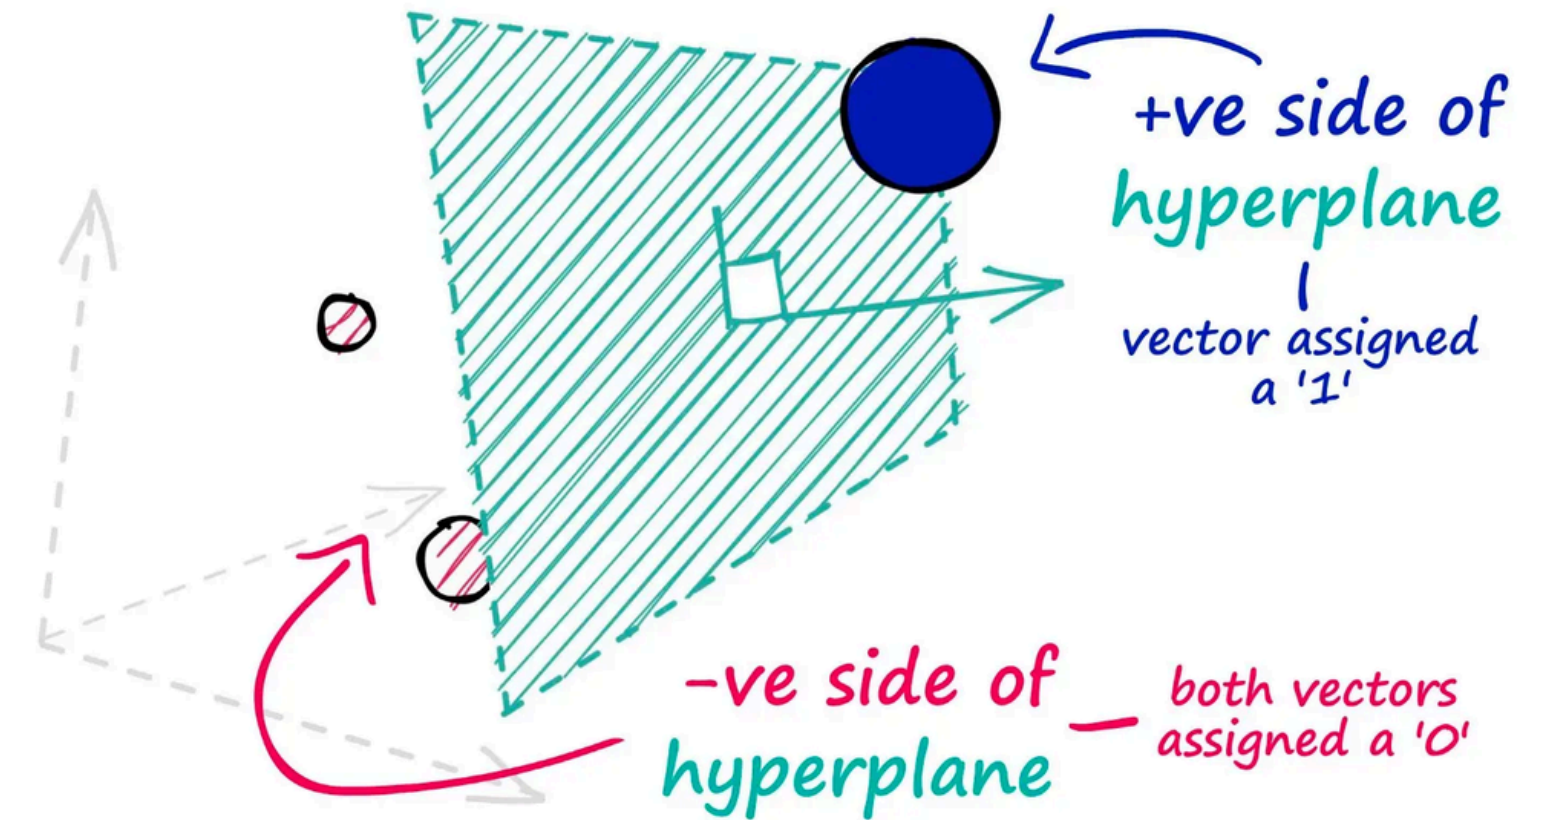 +ve side of
hyperplane
vector assigned
a '1'
-ve side of
hyperplane
both vectors
assigned a '0'